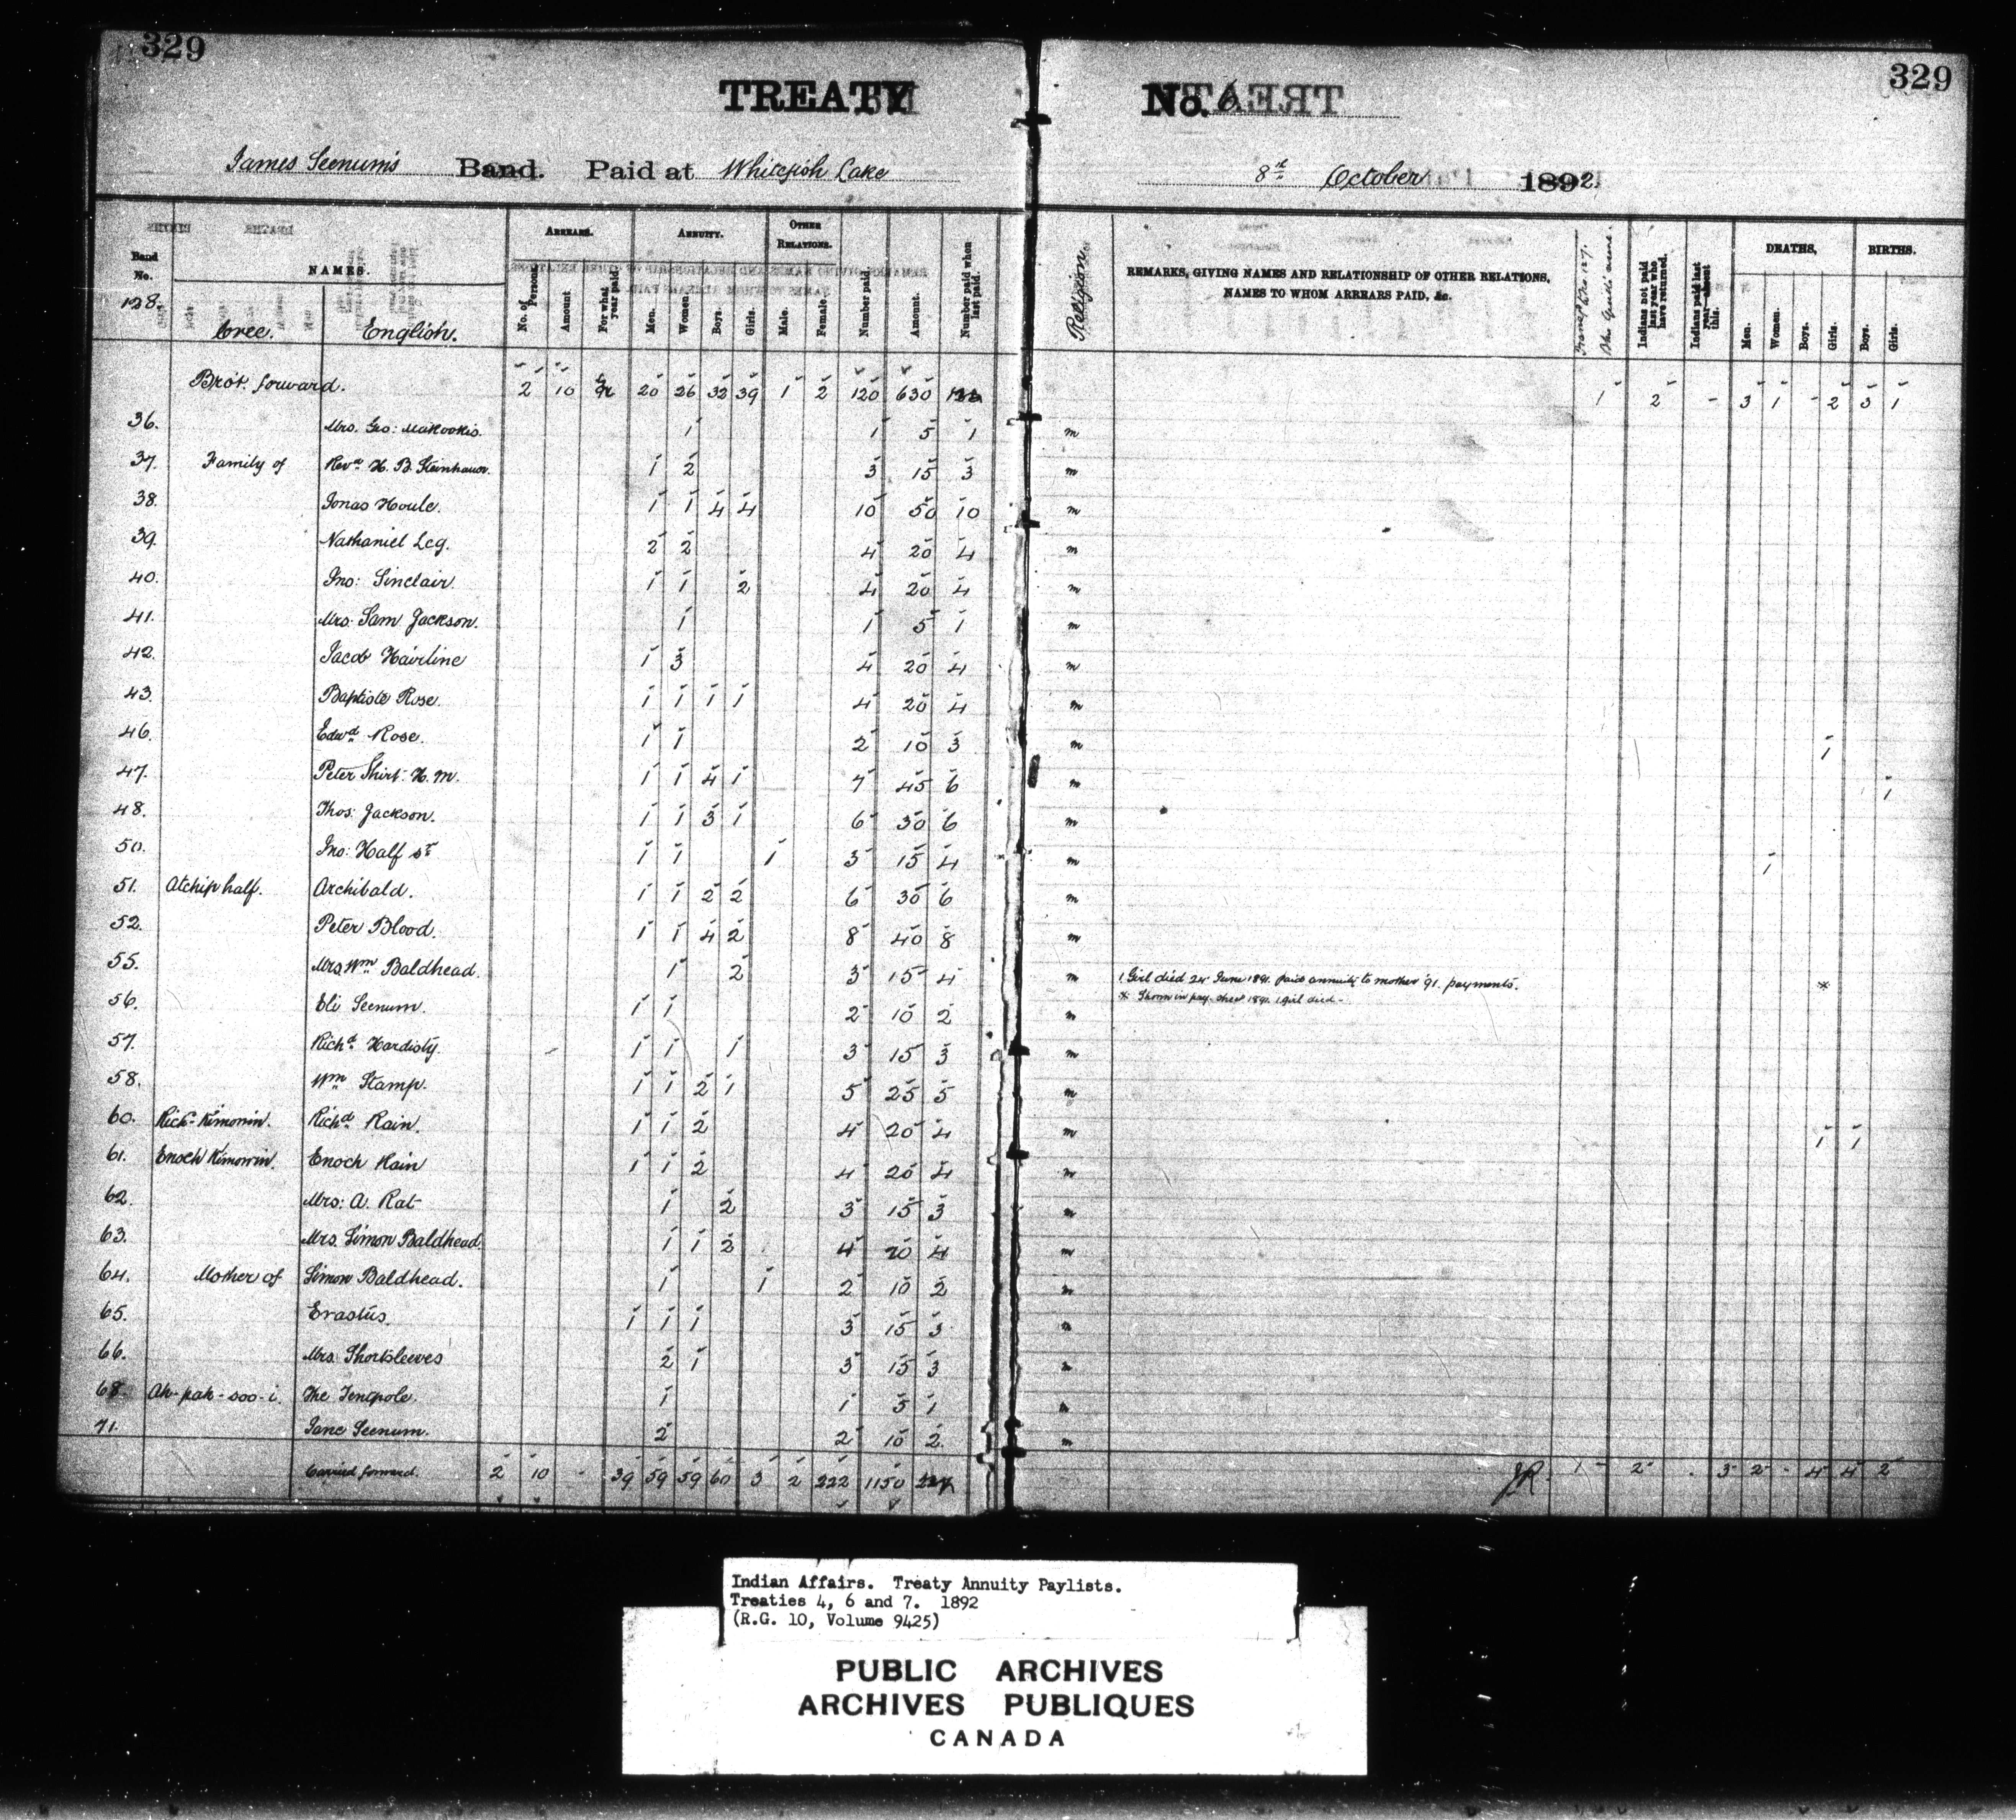 329
329
TREATY No. 6
James Seenum's Band. Paid at Whitefish Lake
8th October 1892
Band No.
128.
NAMES.
Cree. English.
ARREARS.
No. of Persons.
Amount
For what year paid
ANNUITY.
Men.
Women.
Boys.
Girls.
OTHER RELATIONS.
Male.
Female.
Number paid.
Amount.
Number paid when last paid.
Religion
REMARKS, GIVING NAMES AND RELATIONSHIP OF OTHER RELATIONS, NAMES TO WHOM ARREARS PAID, &c.
Indians not paid last year who have returned.
Indians paid last year absent this.
DEATHS,
Men.
Women.
Boys.
Girls.
BIRTHS.
Boys.
Girls.
Brot. forward. 2 10 20 26 32 39 1 2 120 630 1 2 - 3 1 - 2 3 1
36. Mrs. Geo: Makookis. 1 1 5 1 m
37. Family of Revd H. B. Steinhauer. 1 2 3 15 3 m
38. Jonas Houle. 1 1 4 4 10 50 10 m
39. Nathaniel Leg. 2 2 4 20 4 m
40. Jno: Sinclair. 1 1 2 4 20 4 m
41. Mrs. Sam Jackson. 1 1 5 1 m
42. Jacob Hairline 1 3 4 20 4 m
43. Baptiste Rose. 1 1 1 1 4 20 4 m
46. Edwd Rose. 1 1 2 10 3 m 1
47. Peter Shirt. H. M. 1 1 4 1 7 45 6 m 1
48. Thos: Jackson. 1 1 3 1 6 30 6 m
50. Jno: Half sr 1 1 1 3 15 4 m 1
51. Atchip half. Archibald. 1 1 2 2 6 30 6 m
52. Peter Blood. 1 1 4 2 8 40 8 m
55. Mrs. Wm Baldhead. 1 2 3 15 4 m 1 Girl died 24 June 1891. paid annuity to mother '91. payments. *
* Shown in pay-sheet 1891. 1 girl died -
56. Eli Seenum. 1 1 2 10 2 m
57. Richd Hardisty. 1 1 1 3 15 3 m
58. Wm Stamp. 1 1 2 1 5 25 5 m
60. Richd Kimowin. Richd Rain. 1 1 2 4 20 4 m 1 1
61. Enoch Kimowin. Enoch Rain 1 1 2 4 20 4 m
62. Mrs: A. Rat 1 2 3 15 3 m
63. Mrs. Simon Baldhead. 1 1 2 4 20 4 m
64. Mother of Simon Baldhead. 1 1 2 10 2 m
65. Erastus. 1 1 1 3 15 3 m
66. Mrs. Shortsleeves 2 1 3 15 3 m
68. Ah-pah-soo-i. The Tentpole. 1 1 5 1 m
71. Jane Seenum. 2 2 10 2 m
Carried forward. 2 10 - 39 59 59 60 3 2 222 1150 JR. 1 2 - 3 2 - 4 4 2
Indian Affairs. Treaty Annuity Paylists.
Treaties 4, 6 and 7. 1892
(R.G. 10, Volume 9425)
PUBLIC ARCHIVES
ARCHIVES PUBLIQUES
CANADA